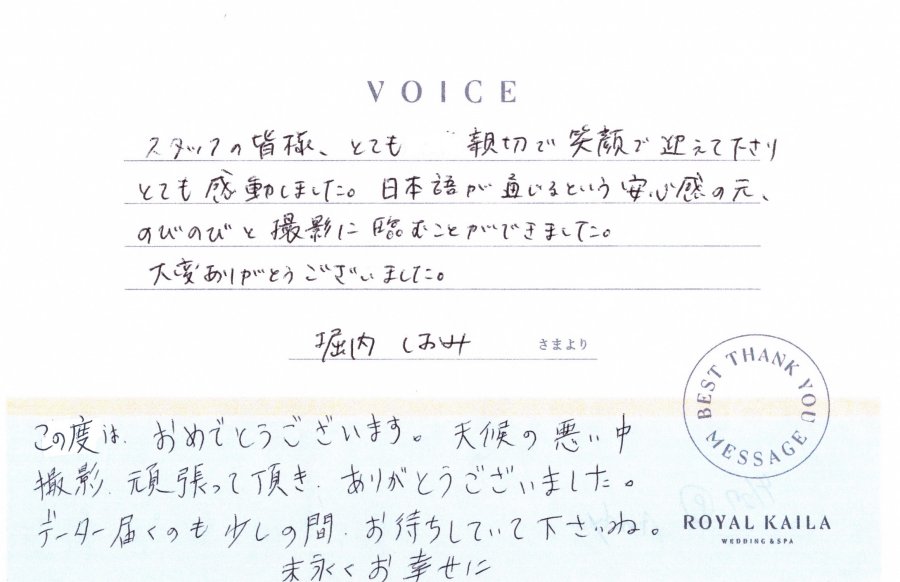 VOICE
スタッフの皆様、とても 親切で笑顔で迎えて下さり
とても感動しました。日本語が通じるという安心感の元、
のびのびと撮影に臨むことができました。
大変ありがとうございました。
堀内 しおみ さまより
BEST THANK YOU MESSAGE
この度は、おめでとうございます。天候の悪い中
撮影、頑張って頂き、ありがとうございました。
データー届くのも少しの間、お待ちしていて下さいね。
末永くお幸せに
ROYAL KAILA
WEDDING & SPA